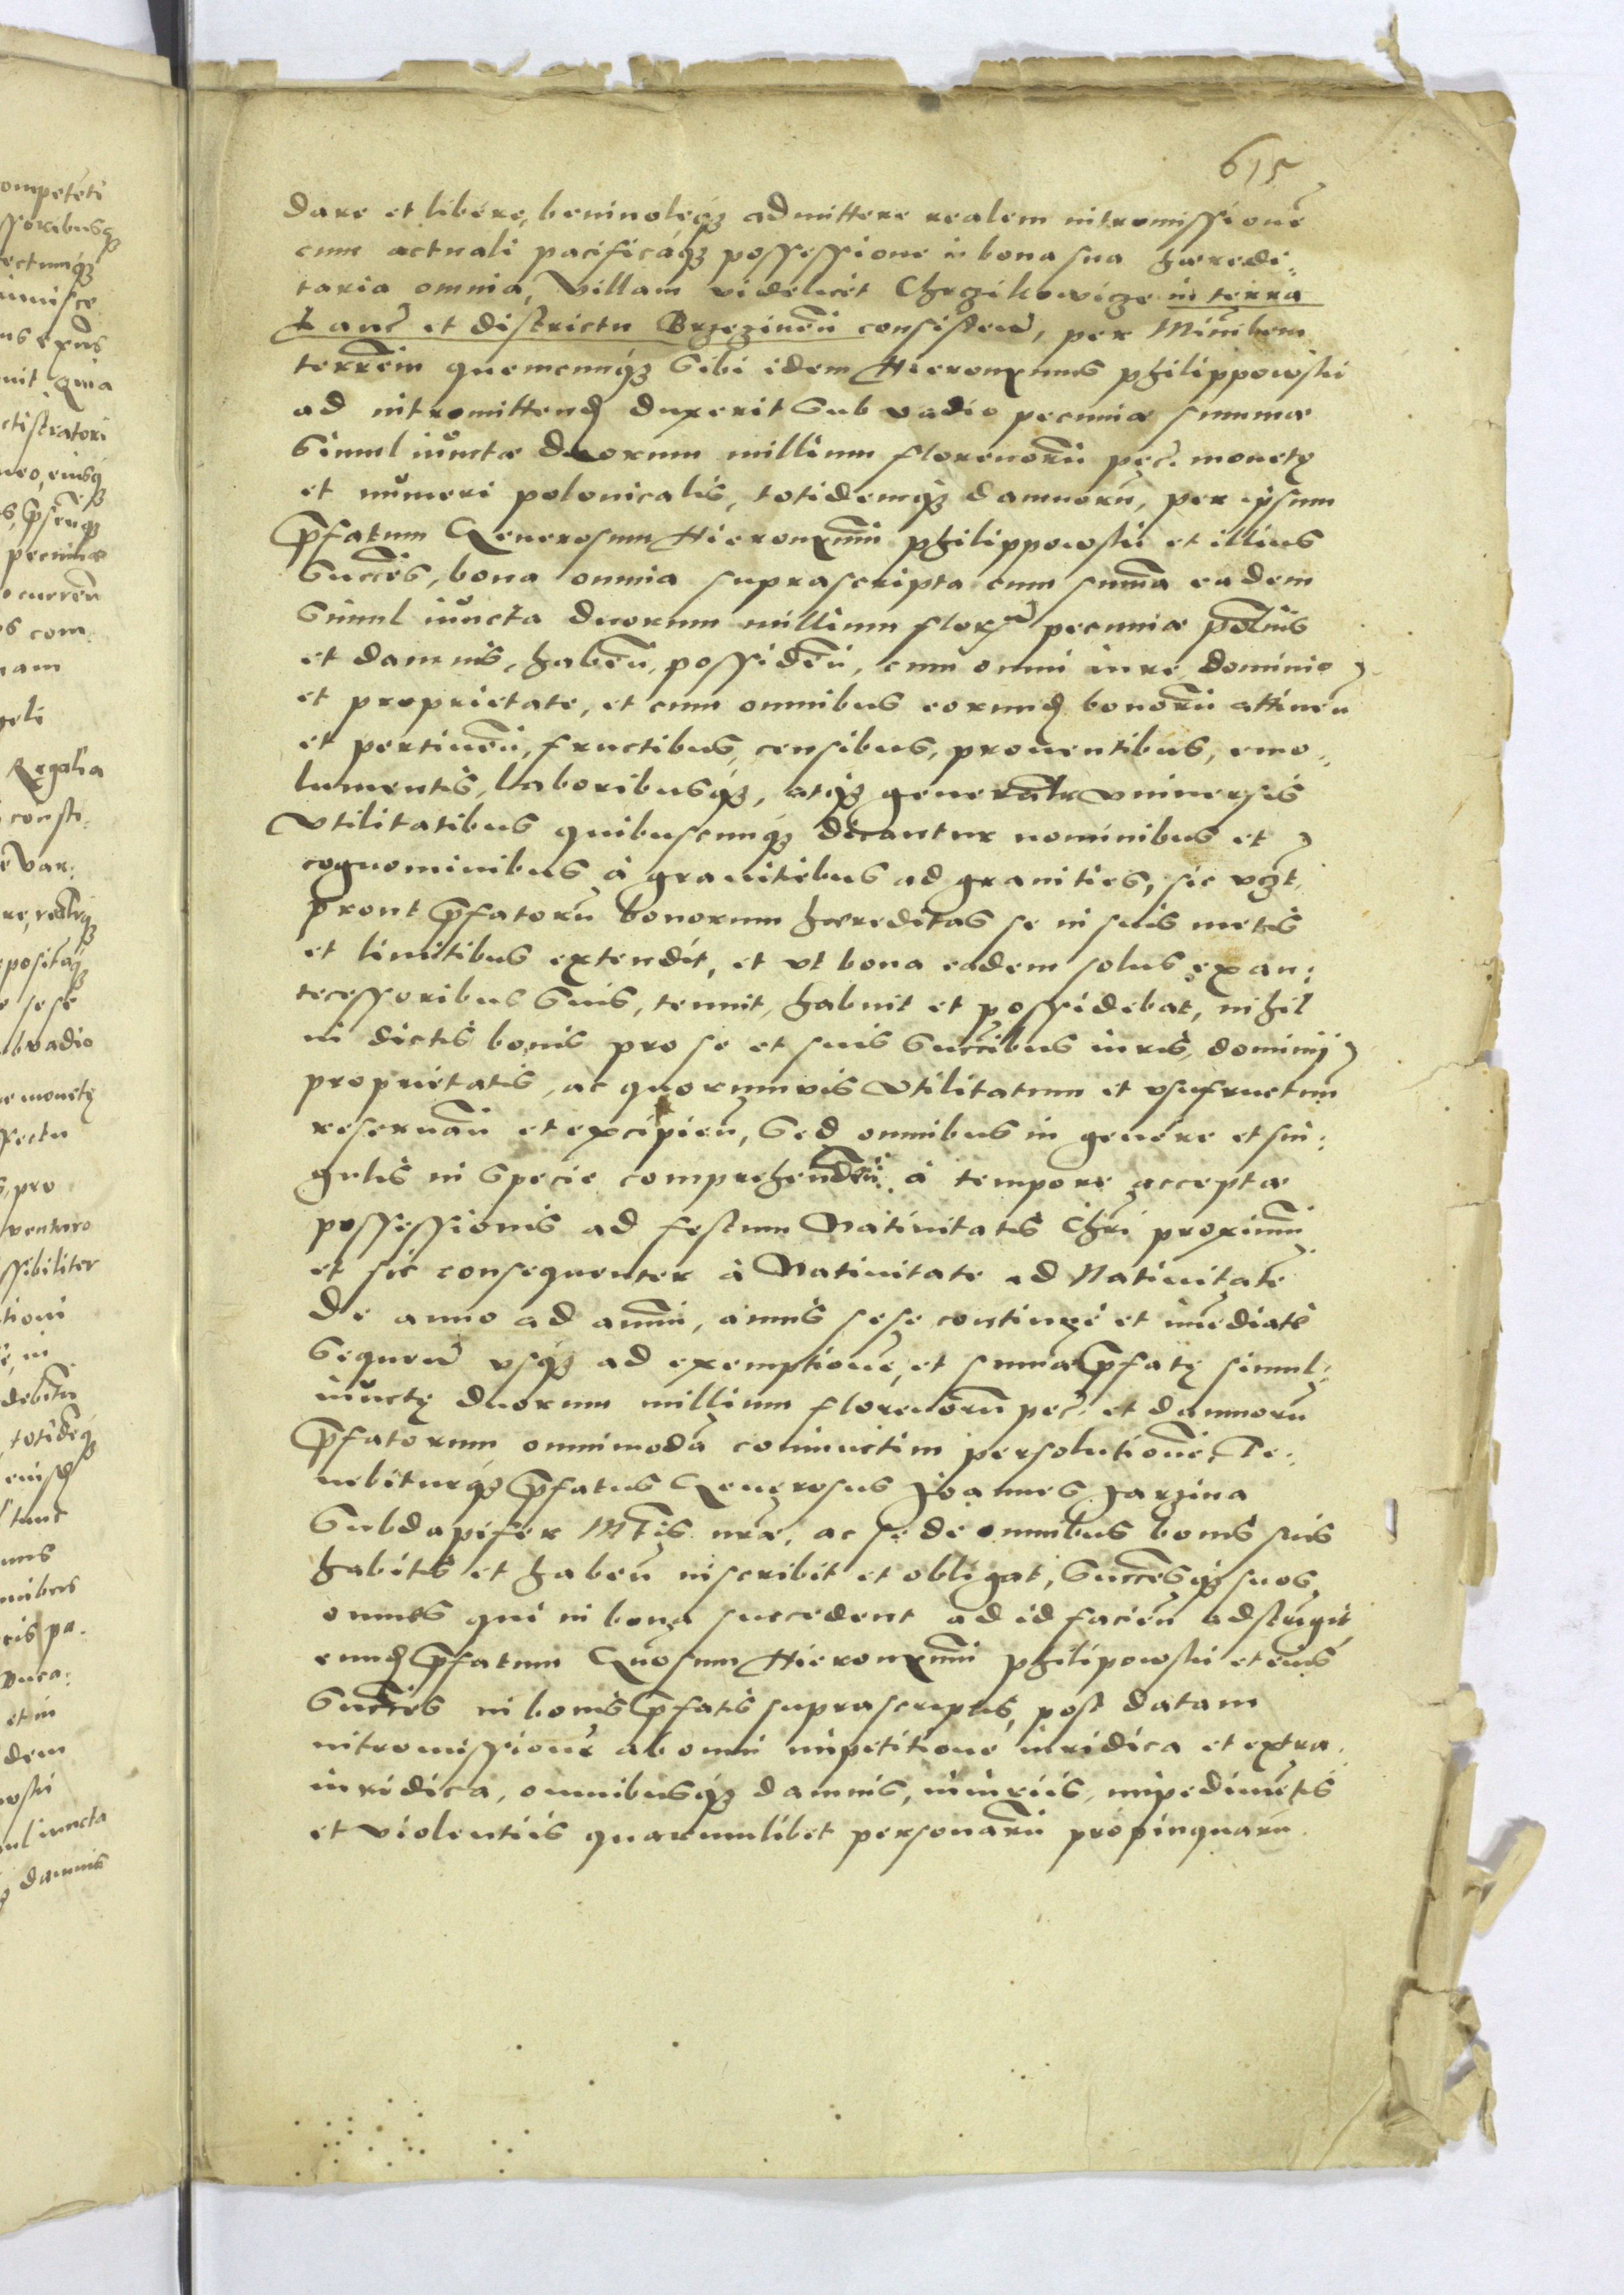 615
dare et libere, beniuoleq́ꝫ admittere realem intromissionē
cum actuali pacificáq́ꝫ possessione in bona sua hæredi„
taria omnia, Villam videlicet Chrzikowicze in terra
Lanc̃ et districtu Brzezineñ consisteñ, per Ministrem
terreñm quemcunq́ꝫ sibi idem Hieronymus philippowski
ad intromittenđ duxerit sub vadio pecuniæ summæ
simul iunctæ duorum millium florenorū pec̃. monetę
et numeri polonicalis, totidemq́ꝫ damnorū, per ipsum
p̃fatum Generosum Hieronymū philippowski et illius
Succēs, bona omnia suprascripta cum sum̃a eadem
simul iuncta duorum millium flor̃ pecuniæ polnis
et damnis, habeñ, possideñ, cum omni iure dominio
et proprietate, et cum omnibus eorunđ bonorū attineñ
et pertineñ, fructibus, censibus, prouentibus, emo„
lumentis, laboribusq́ꝫ, atq́ꝫ generalr̃ vniuersis
Vtilitatibus quibuscunq́ꝫ dicantur nominibus et
cognominibus à granitiebus ad granities, sic vt,
prout p̃fatorū bonorum hæreditas se in suis metis
et limitibus extendit, et vt bona eadem solus ex an:
tecessoribus suis, tenuit, habuit et possidebat, nihil
in dictis bonis pro se et suis Succc̃ibus iuris, dominij
proprietatis, ac quorumvis Vtilitatum et vsufructum
reseruañ et excipieñ, Sed omnibus in genere et sin:
gulis in specie comprehendeñ: à tempore acceptæ
possessionis ad festum Natiuitatis Chri proximū
et sic consequenter à Natiuitate ad Natiuitatē
de anno ad annū, annis sese contingē et im̃ediatè
sequeñ vsq́ꝫ ad exemptionē, et sum̃æ p̃fatę simul:
iunctę duorum millium florenorū pec̃. et damnorū
p̃fatorum omnimodā coniunctim persolutionē, Te:
nebiturq́ꝫ p̃fatus Generosus Joannes Jarzina
Subdapifer Mtis nræ, ac se de omnibus bonis suis
habitis et habeñ inscribit et obligat, Succēsq́ꝫ suos
omnes qui in bona succedent ad id facieñ adstringit
eunđ p̃fatum Gñosum Hieronymū philipowski et eius
Succēs in bonis p̃fatis suprascriptis, post datam
intromissionē ab omni impetitione iuridica et extra.
iuridica, omnibusq́ꝫ damnis, iniuriis, impedimētis
et violentiis quarumlibet personarū propinquarū